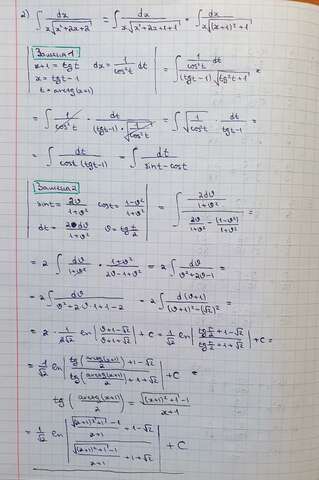 2) ∫ dx / (x√(x²+2x+2)) = ∫ dx / (x√(x²+2x+1+1)) = ∫ dx / (x√((x+1)²+1))
Замена 1
x+1 = tg t   dx = 1/cos²t dt
x = tg t - 1
t = arctg(x+1)
= ∫ (1/cos²t dt) / ((tg t -1)√(tg²t+1)) =
= ∫ 1/cos²t · dt / ((tg t -1)·√(1/cos²t)) = ∫ √(1/cos²t) · dt/(tg t -1) =
= ∫ dt / (cos t (tg t -1)) = ∫ dt / (sin t - cos t)
Замена 2
sin t = 2υ/(1+υ²)   cos t = (1-υ²)/(1+υ²)
dt = 2dυ/(1+υ²)   υ = tg t/2
= ∫ (2dυ/(1+υ²)) / (2υ/(1+υ²) - (1-υ²)/(1+υ²)) =
= 2 ∫ dυ/(1+υ²) · (1+υ²)/(2υ-1+υ²) = 2 ∫ dυ/(υ²+2υ-1) =
= 2 ∫ dυ/(υ²+2·υ·1+1-2) = 2 ∫ d(υ+1)/((υ+1)²-(√2)²) =
= 2 · 1/(2√2) ln |(υ+1-√2)/(υ+1+√2)| + C = 1/√2 ln |(tg t/2 +1-√2)/(tg t/2 +1+√2)| + C =
= 1/√2 ln |(tg(arctg(x+1)/2)+1-√2)/(tg(arctg(x+1)/2)+1+√2)| + C =
tg(arctg(x+1)/2) = (√((x+1)²+1)-1)/(x+1)
= 1/√2 ln |((√((x+1)²+1)-1)/(x+1) +1-√2)/((√((x+1)²+1)-1)/(x+1) +1+√2)| + C